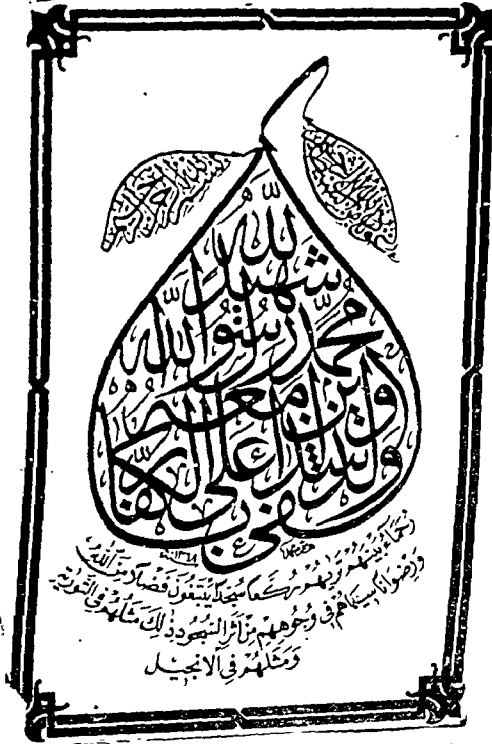 وكفى بالله
شهيدا
محمد رسول الله
والذين معه
أشداء على الكفار
سنة ١٣٦٨
رُحَمَاءُ بَيْنَهُمْ تَرٰيهُمْ رُكَّعًا سُجَّدًا يَبْتَغُونَ فَضْلًا مِنَ اللّٰهِ
وَرِضْوَانًا سِيمَاهُمْ فِي وُجُوهِهِمْ مِنْ اَثَرِ السُّجُودِ ذٰلِكَ مَثَلُهُمْ فِي التَّوْرٰيةِ
وَمَثَلُهُمْ فِي الْاِنْجِيلِ